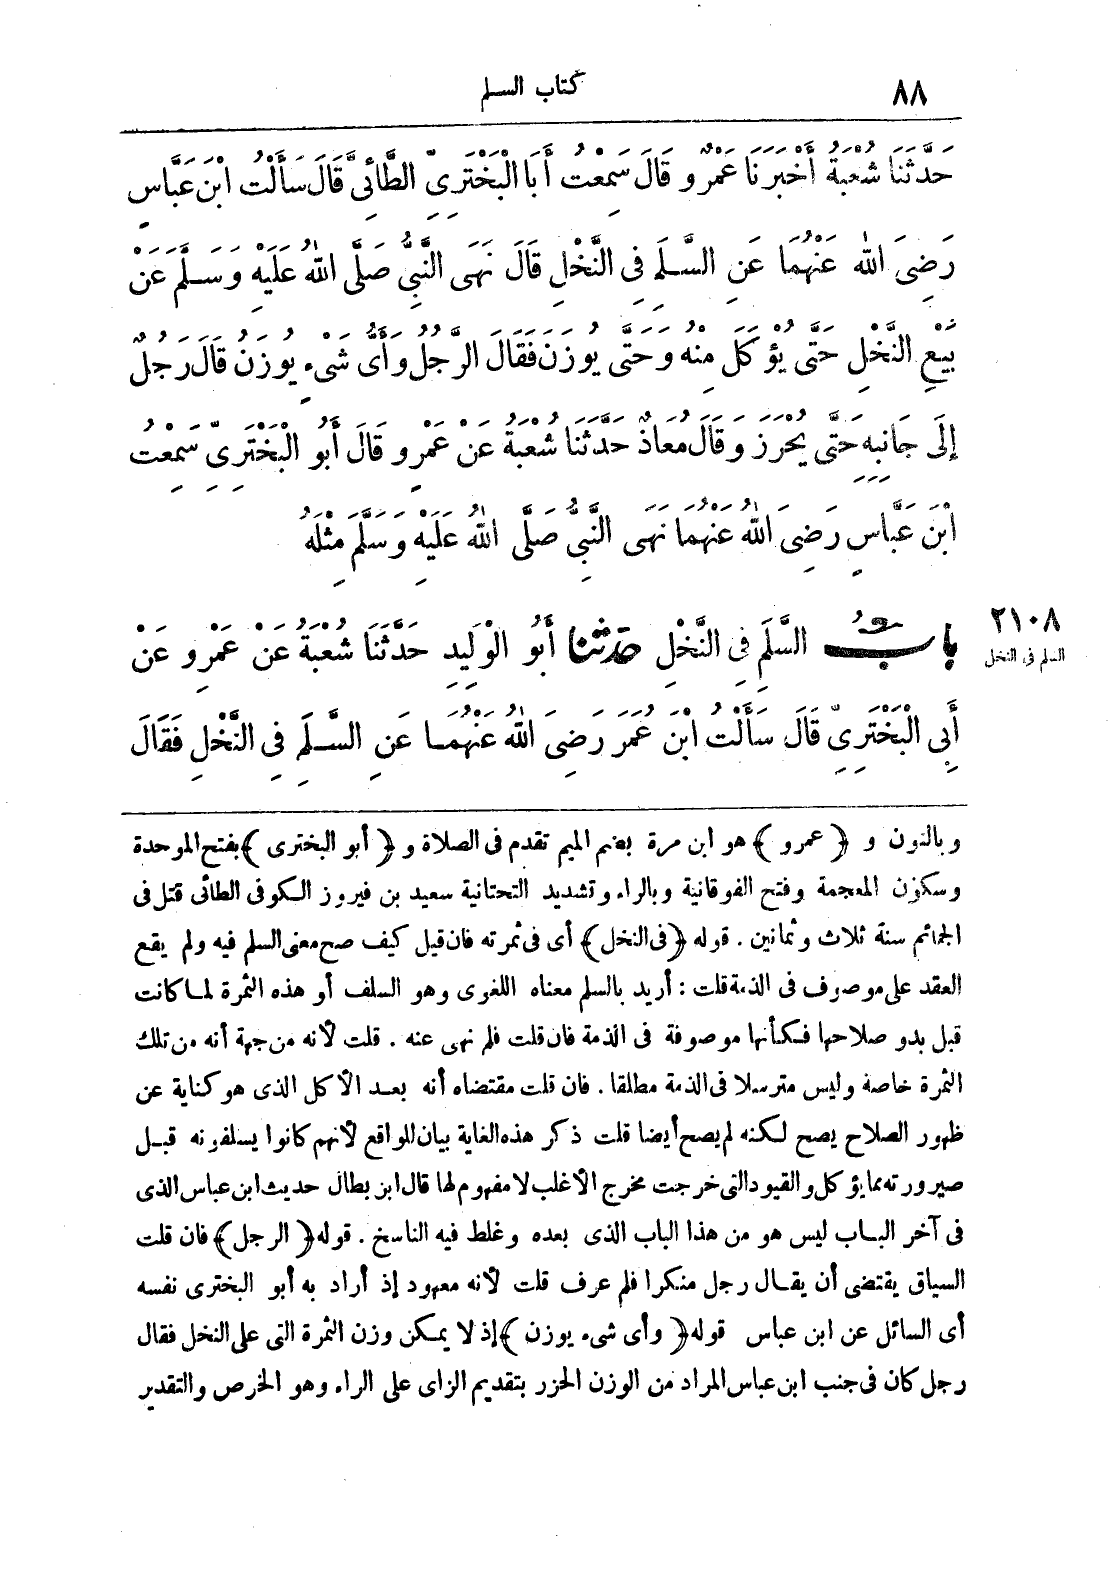 ٨٨
كتاب السلم
حَدَّثَنَا شُعْبَةُ أَخْبَرَنَا عَمْرٌو قَالَ سَمِعْتُ أَبَا الْبَخْتَرِيِّ الطَّائِيَّ قَالَ سَأَلْتُ ابْنَ عَبَّاسٍ
رَضِيَ اللهُ عَنْهُمَا عَنِ السَّلَمِ فِي النَّخْلِ قَالَ نَهَى النَّبِيُّ صَلَّى اللهُ عَلَيْهِ وَسَلَّمَ عَنْ
بَيْعِ النَّخْلِ حَتَّى يُؤْكَلَ مِنْهُ وَحَتَّى يُوزَنَ فَقَالَ الرَّجُلُ وَأَيُّ شَيْءٍ يُوزَنُ قَالَ رَجُلٌ
إِلَى جَانِبِهِ حَتَّى يُحْرَزَ وَقَالَ مُعَاذٌ حَدَّثَنَا شُعْبَةُ عَنْ عَمْرٍو قَالَ أَبُو الْبَخْتَرِيِّ سَمِعْتُ
ابْنَ عَبَّاسٍ رَضِيَ اللهُ عَنْهُمَا نَهَى النَّبِيُّ صَلَّى اللهُ عَلَيْهِ وَسَلَّمَ مِثْلَهُ
٢١٠٨
السلم فى النخل
بابُ السَّلَمِ فِي النَّخْلِ حدثنا أَبُو الْوَلِيدِ حَدَّثَنَا شُعْبَةُ عَنْ عَمْرٍو عَنْ
أَبِي الْبَخْتَرِيِّ قَالَ سَأَلْتُ ابْنَ عُمَرَ رَضِيَ اللهُ عَنْهُمَا عَنِ السَّلَمِ فِي النَّخْلِ فَقَالَ
وبالنون و ﴿عمرو﴾ هو ابن مرة بضم الميم تقدم فى الصلاة و ﴿أبو البخترى﴾ بفتح الموحدة
وسكون المعجمة وفتح الفوقانية وبالراء وتشديد التحتانية سعيد بن فيروز الكوفى الطائى قتل فى
الجماجم سنة ثلاث وثمانين . قوله ﴿فى النخل﴾ أى فى ثمرته فان قيل كيف صح معنى السلم فيه ولم يقع
العقد على موصوف فى الذمة قلت : أريد بالسلم معناه اللغوى وهو السلف أو هذه الثمرة لما كانت
قبل بدو صلاحها فكأنها موصوفة فى الذمة فان قلت فلم نهى عنه . قلت لأنه من جهة أنه من تلك
الثمرة خاصة وليس مترسلا فى الذمة مطلقا . فان قلت مقتضاه أنه بعد الأكل الذى هو كناية عن
ظهور الصلاح يصح لكنه لم يصح أيضا قلت ذكر هذه الغاية بيان للواقع لأنهم كانوا يسلفونه قبل
صيرورته مما يؤكل والقيود التى خرجت مخرج الأغلب لا مفهوم لها قال ابن بطال حديث ابن عباس الذى
فى آخر الباب ليس هو من هذا الباب الذى بعده وغلط فيه الناسخ . قوله ﴿الرجل﴾ فان قلت
السياق يقتضى أن يقال رجل منكرا فلم عرف قلت لأنه معهود إذ أراد به أبو البخترى نفسه
أى السائل عن ابن عباس قوله ﴿وأى شىء يوزن﴾ إذ لا يمكن وزن الثمرة التى على النخل فقال
رجل كان فى جنب ابن عباس المراد من الوزن الحزر بتقديم الزاى على الراء وهو الخرص والتقدير